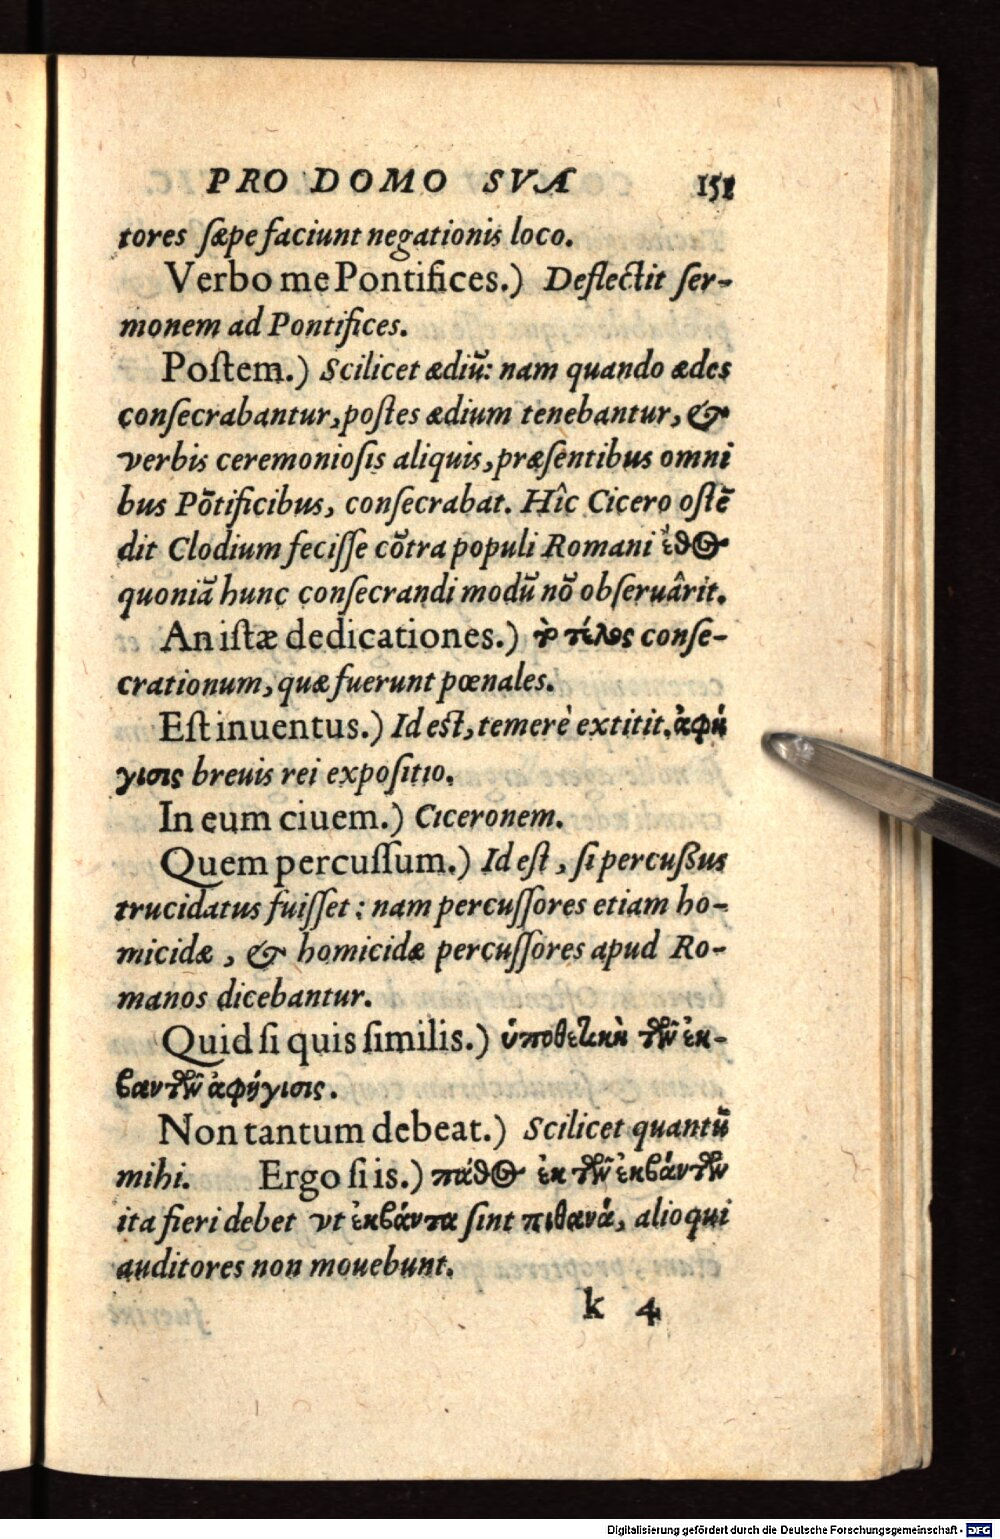 PRO DOMO SVA 151
tores ſæpe faciunt negationis loco.
Verbo me Pontifices.) Deflectit ſer-
monem ad Pontifices.
Poſtem.) Scilicet ædiũ: nam quando ædes
conſecrabantur, poſtes ædium tenebantur, &
verbis ceremonioſis aliquis, præſentibus omni
bus Põtificibus, conſecrabat. Hîc Cicero oſtẽ
dit Clodium feciſſe cõtra populi Romani ἔθος
quoniã hunc conſecrandi modũ nõ obſeruârit.
An iſtæ dedicationes.) τὸ τέλος conſe-
crationum, quæ fuerunt pœnales.
Eſt inuentus.) Id eſt, temerè extitit. ἀφή
γισις breuis rei expoſitio.
In eum ciuem.) Ciceronem.
Quem percuſſum.) Id eſt, ſi percußus
trucidatus fuiſſet: nam percuſſores etiam ho-
micidæ, & homicidæ percuſſores apud Ro-
manos dicebantur.
Quid ſi quis ſimilis.) ὑποθετικὴ τῶν ἐκ-
βαντῶν ἀφήγισις.
Non tantum debeat.) Scilicet quantũ
mihi. Ergo ſi is.) πάθος ἐκ τῶν ἐκβάντων
ita fieri debet vt ἐκβάντα ſint πιθανά, alioqui
auditores non mouebunt.
k 4
Digitalisierung gefördert durch die Deutsche Forschungsgemeinschaft - DFG